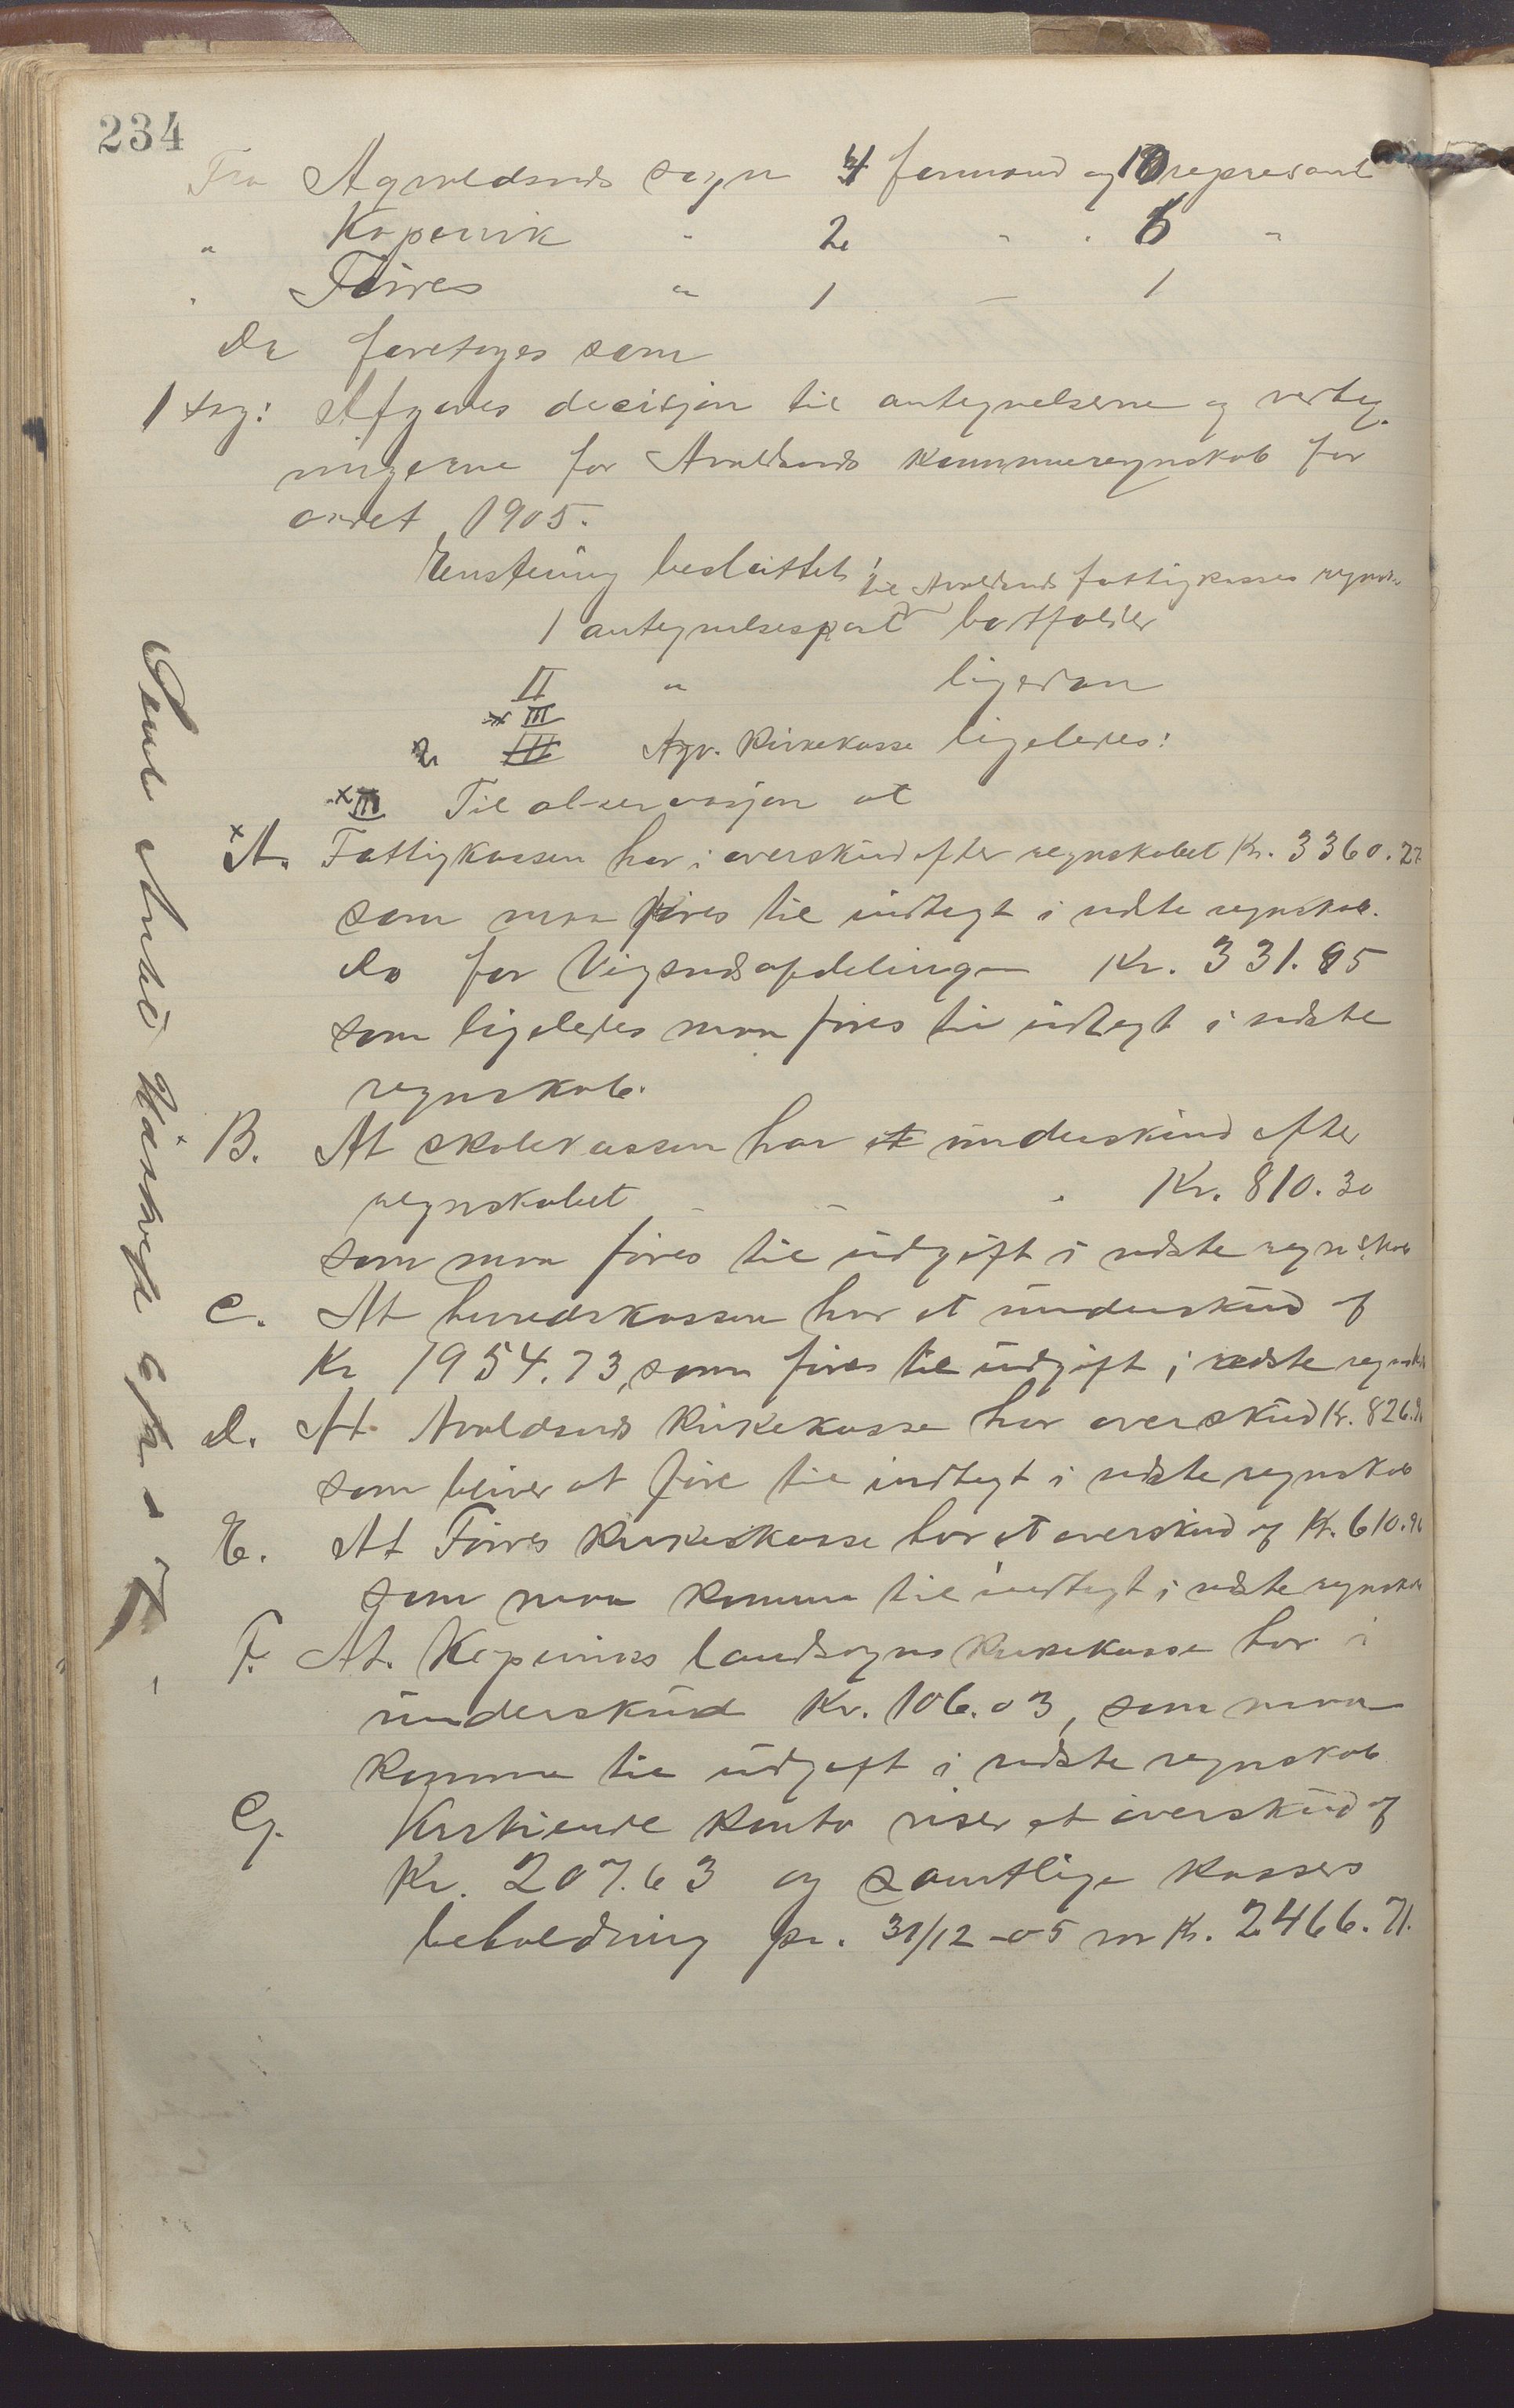 234
Fra Agvaldsnes sogn 4 formænd og 10 repræsant
" Kopervik " 2 " " 5 "
" Føres " 1 — 1
Da foretoges som
1 sag: Afgaves decisjon til antegnelserne og verteg
ningerne for Avaldsnes kommuneregnskab for
aaret 1905.
Enstemig besluttet:
til Avaldsnes fattigkasses regnsk.
1 antegnelsespost bortfalder
II " ligesaa
x III
2 III Agv. Kirkekasse ligeledes:
x III Til observasjon at
x A. Fattigkassen har i overskud efter regnskabet Kr. 3360.27
som maa føres til indtegt i neste regnskab.
Do for Vigsnesafdelingen Kr. 331.95
som ligeledes maa føres til indtegt i neste
regnskab.
B. At skolekassen har et underskud efter
regnskabet - - . Kr. 810.30
som maa føres til udgift i neste regnskab
C. At herredskassen har et underskud af
Kr 1954.73, som føres til udgift i neste regnskab
D. At Avaldsnes Kirkekasse har overskud Kr. 826.
som bliver at føre til indtegt i neste regnskab
E. At Føres Kirkeskasse har et overskud af Kr. 610.96
som maa komme til indtegt i neste regnskab
F. At. Koperviks landsogns Kirkekasse har i
underskud Kr. 106.03, som maa
komme til udgift i neste regnskab
G. Korntiende Konto viser et overskud af
Kr. 207.63 og samtlige kassers
beholdning pr. 31/12-05 var Kr. 2466.71.